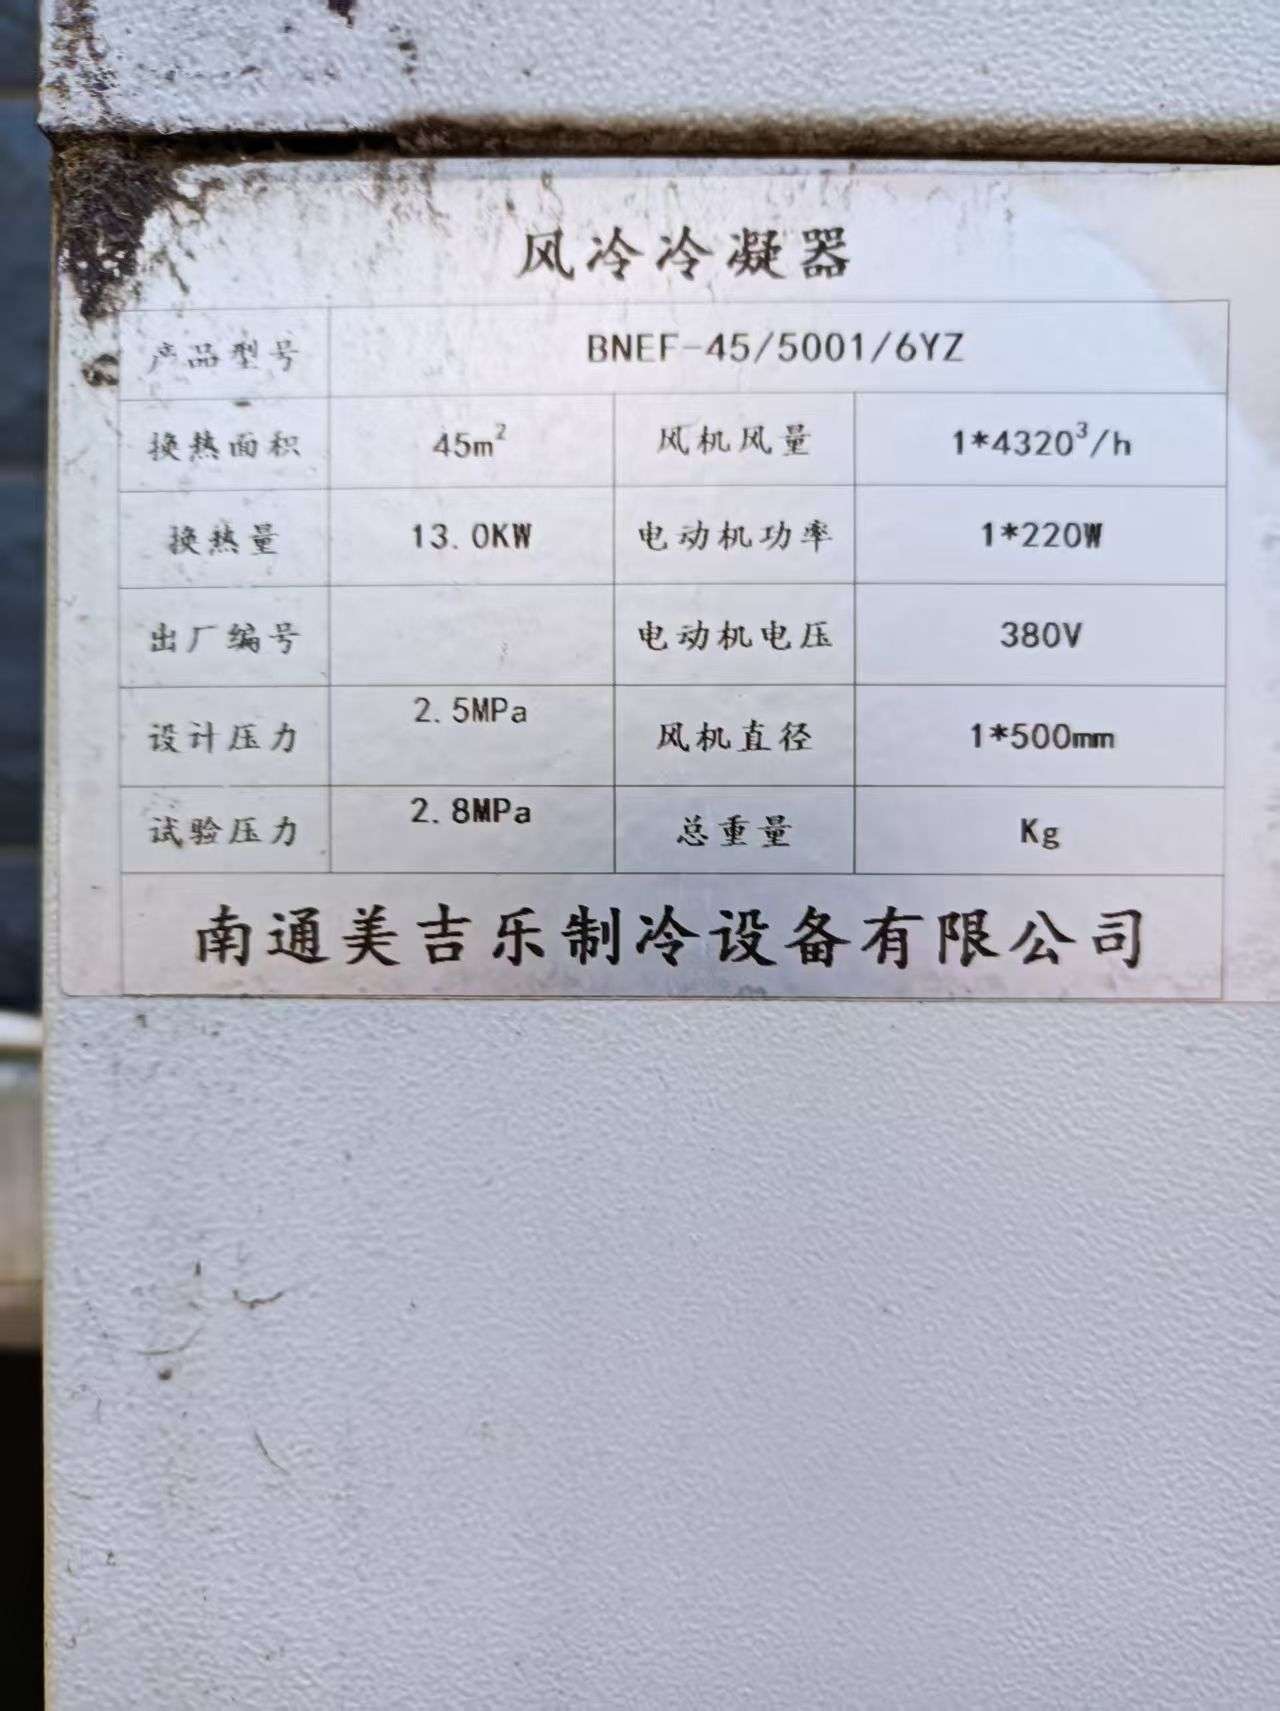 风冷冷凝器
产品型号 BNEF-45/5001/6YZ
换热面积 45m² 风机风量 1*4320³/h
换热量 13.0KW 电动机功率 1*220W
出厂编号 电动机电压 380V
设计压力 2.5MPa 风机直径 1*500mm
试验压力 2.8MPa 总重量 Kg
南通美吉乐制冷设备有限公司